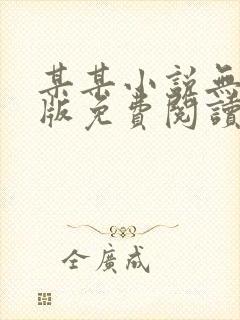 某某小説無
版免費閱讀
全廣成